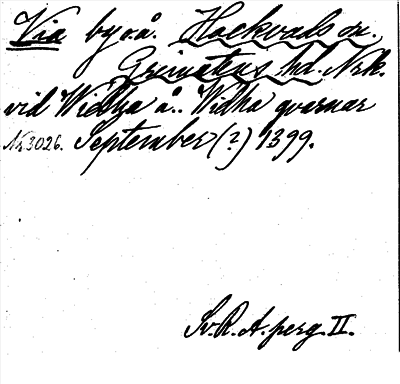 Via by o. å. Hackvads sn.
Grimstens hd. Nrk.
vid Widha å.. Widha qvarnar
Nr 3026. September (?) 1399.
Sv. R. A. perg. II.